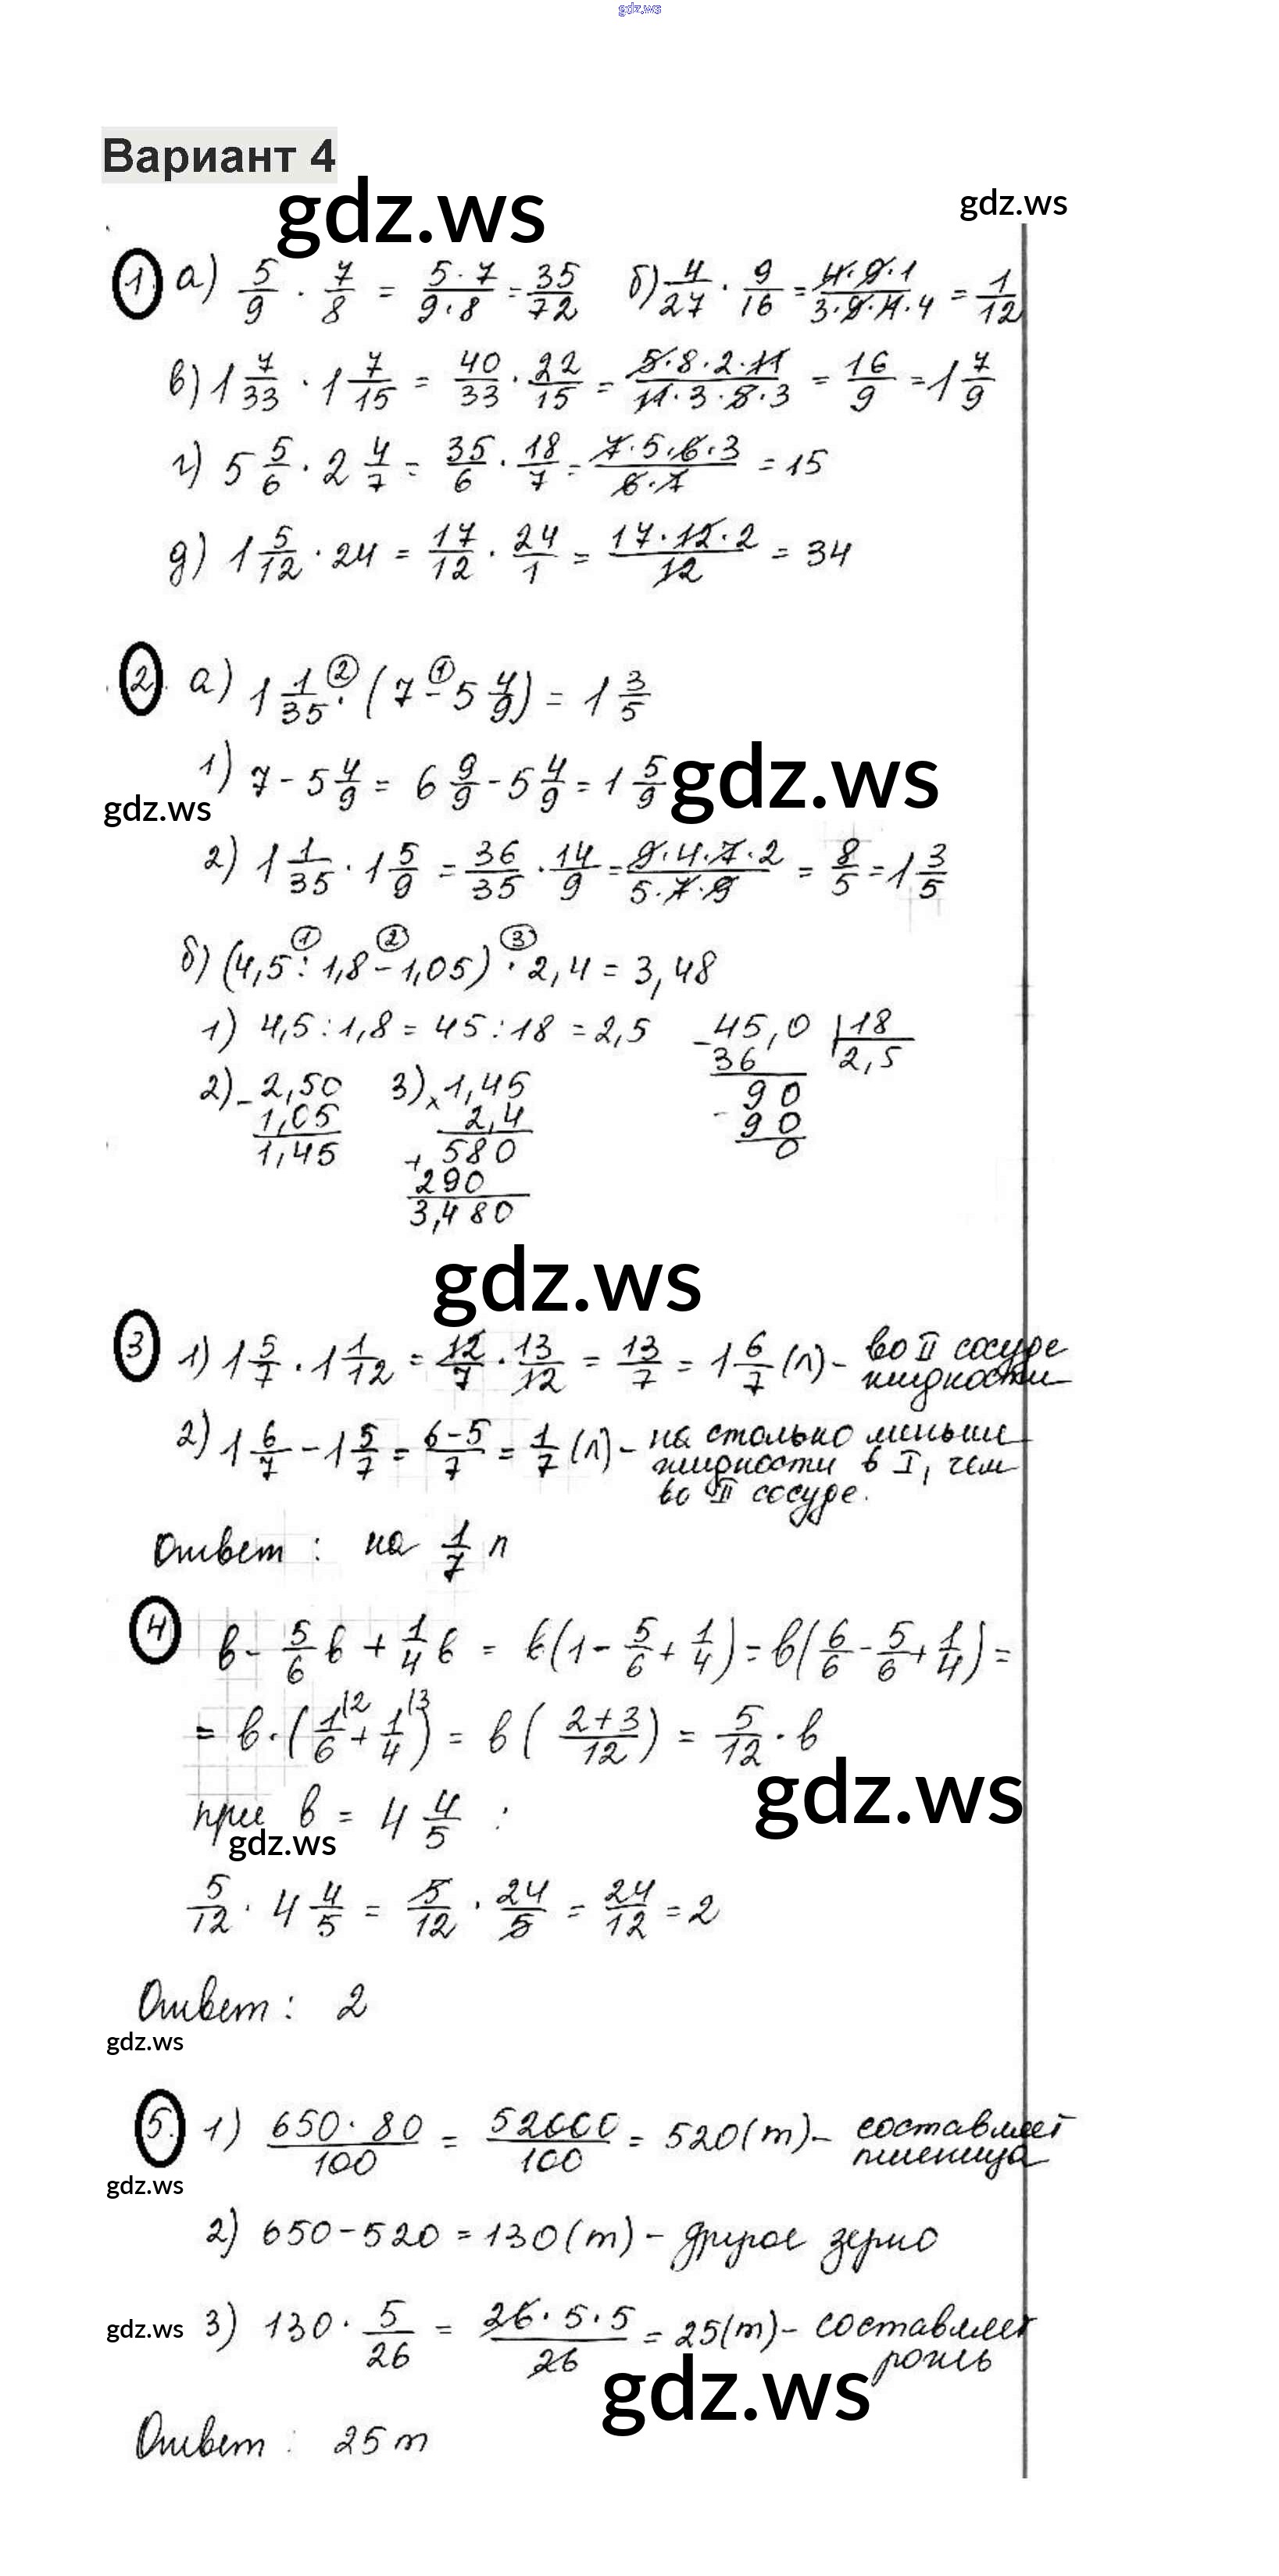 gdz.ws
Вариант 4
gdz.ws
gdz.ws
1. а) 5/9 · 7/8 = 5·7/9·8 = 35/72 б) 4/27 · 9/16 = 4·9·1/3·9·4·4 = 1/12
в) 1 7/33 · 1 7/15 = 40/33 · 22/15 = 5·8·2·11/11·3·5·3 = 16/9 = 1 7/9
г) 5 5/6 · 2 4/7 = 35/6 · 18/7 = 7·5·6·3/6·7 = 15
д) 1 5/12 · 24 = 17/12 · 24/1 = 17·12·2/12 = 34
2. а) 1 1/35 ② · (7 ① - 5 4/9) = 1 3/5
1) 7 - 5 4/9 = 6 9/9 - 5 4/9 = 1 5/9
gdz.ws
gdz.ws
2) 1 1/35 · 1 5/9 = 36/35 · 14/9 = 9·4·7·2/5·7·9 = 8/5 = 1 3/5
б) (4,5 ① : 1,8 ② - 1,05) ③ · 2,4 = 3,48
1) 4,5 : 1,8 = 45 : 18 = 2,5 - 45,0 | 18
36 2,5
2) - 2,50 3) x 1,45 90
1,05 2,4 - 90
1,45 + 580 0
290
3,480
gdz.ws
3 1) 1 5/7 · 1 1/12 = 12/7 · 13/12 = 13/7 = 1 6/7 (л) - во II сосуде
жидкости
2) 1 6/7 - 1 5/7 = 6-5/7 = 1/7 (л) - на столько меньше
жидкости в I, чем
во II сосуде.
Ответ : на 1/7 л
4 в - 5/6 в + 1/4 в = в(1 - 5/6 + 1/4) = в(6/6 - 5/6 + 1/4) =
= в · (1/6 |2 + 1/4 |3) = в (2+3/12) = 5/12 · в
gdz.ws
при в = 4 4/5 :
gdz.ws
5/12 · 4 4/5 = 5/12 · 24/5 = 24/12 = 2
Ответ : 2
gdz.ws
5. 1) 650·80/100 = 52000/100 = 520 (т) - составляет
пшеница
gdz.ws
2) 650 - 520 = 130 (т) - другое зерно
gdz.ws
3) 130 · 5/26 = 26·5·5/26 = 25 (т) - составляет
рожь
gdz.ws
Ответ : 25 т